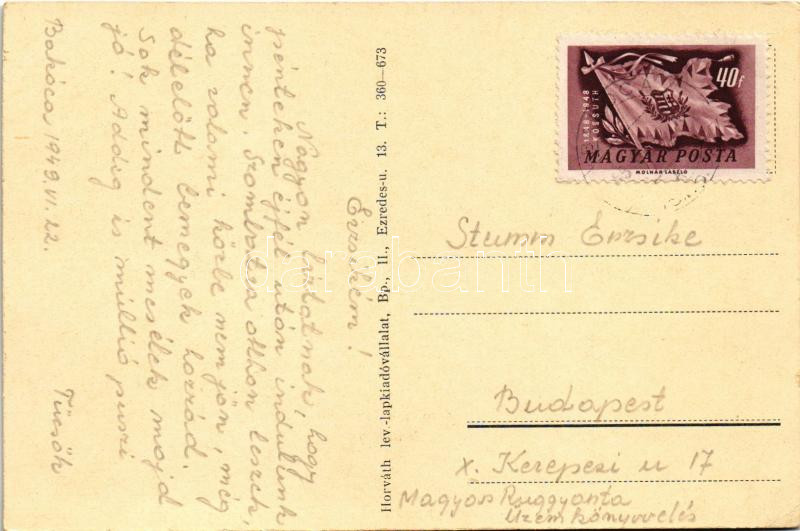 Erzsikém!
Nagyon tudatnak, hogy
pénteken éjfél után indulunk
innen. Szombatra otthon leszek,
ha valami közbe nem jön, még
délelőtt bemegyek hozzád.
Sok mindent mesélek majd
jó! Addig is millió puszi
Bakóca 1949. VI. 22.
Tücsök
Horváth lev.-lapkiadóvállalat, Bp., II., Ezredes-u. 13. T.: 360—673
40f
1848-1948
KOSSUTH
MAGYAR POSTA
MOLNÁR LÁSZLÓ
Stumm Erzsike
Budapest
X. Kerepesi u 17
Magyar Ruggyanta
Üzem könyvelés
darabanth